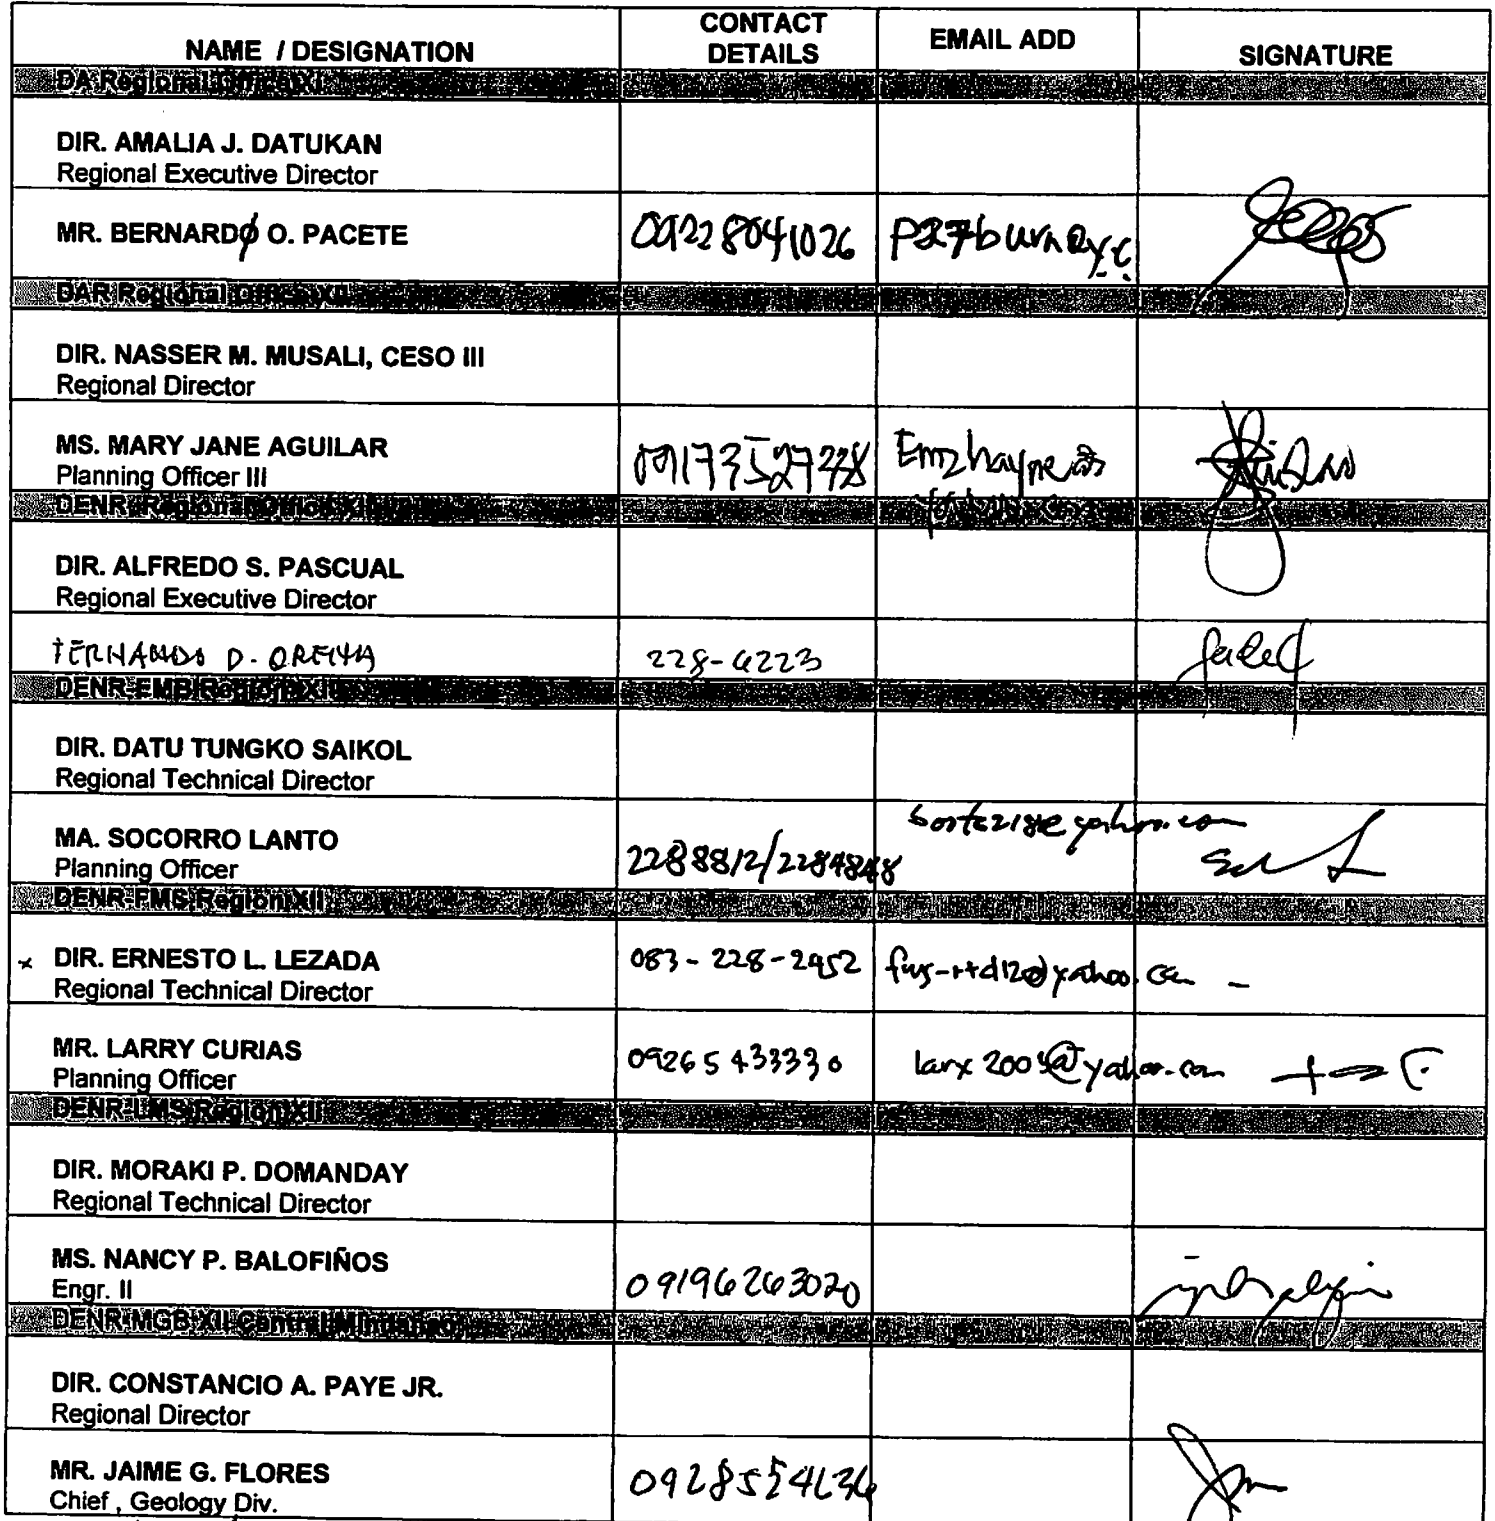 NAME / DESIGNATION
CONTACT
DETAILS
EMAIL ADD
SIGNATURE
DA Regional Office XI
DIR. AMALIA J. DATUKAN
Regional Executive Director
MR. BERNARDO O. PACETE 09228041026
DAR Regional Office XII
DIR. NASSER M. MUSALI, CESO III
Regional Director
MS. MARY JANE AGUILAR
Planning Officer III
DENR Regional Office XII
DIR. ALFREDO S. PASCUAL
Regional Executive Director
D. 228-6223
DENR-EMB Region XII
DIR. DATU TUNGKO SAIKOL
Regional Technical Director
MA. SOCORRO LANTO 2288812/2284848
Planning Officer
DENR-FMS Region XII
DIR. ERNESTO L. LEZADA 083-228-2952
Regional Technical Director
MR. LARRY CURIAS 09265433330
Planning Officer
DENR-LMS Region XII
DIR. MORAKI P. DOMANDAY
Regional Technical Director
MS. NANCY P. BALOFIÑOS 09196263020
Engr. II
DENR-MGB XII Central Mindanao
DIR. CONSTANCIO A. PAYE JR.
Regional Director
MR. JAIME G. FLORES
Chief , Geology Div.